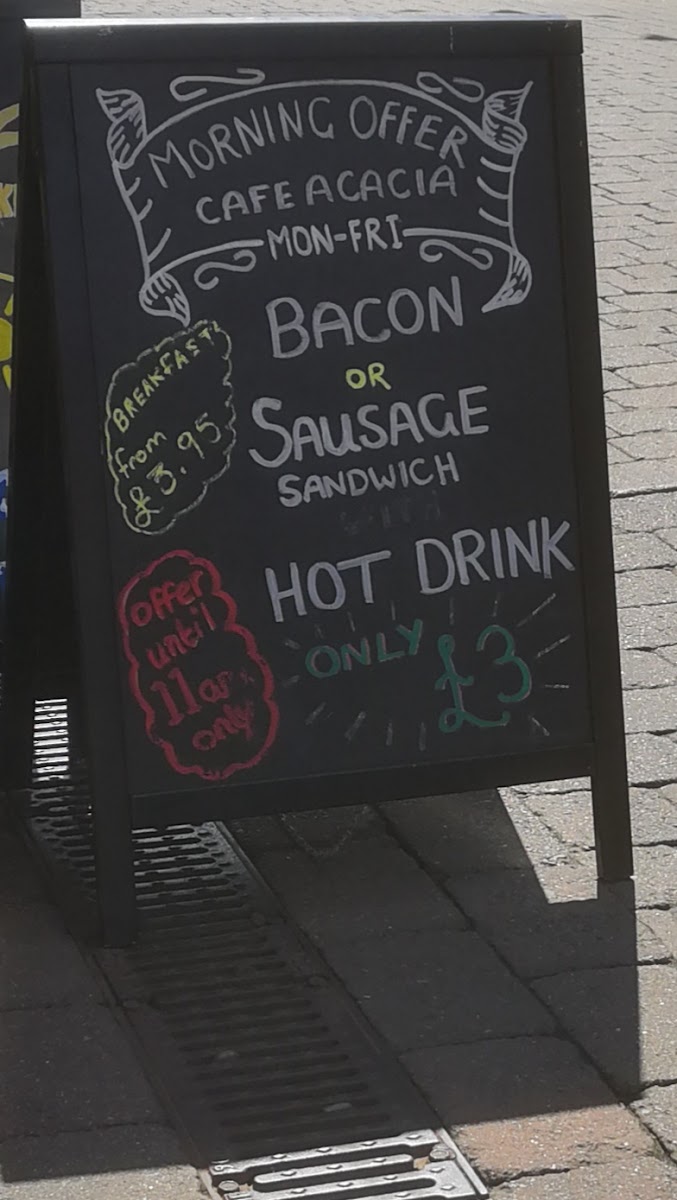 MORNING OFFER
CAFE ACACIA
MON-FRI
BACON
OR
SAUSAGE
SANDWICH
WITH
HOT DRINK
ONLY £3
BREAKFAST
from
£3.95
offer
until
11am
only